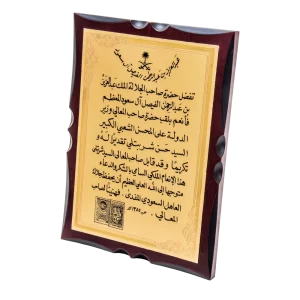 تفضل حضرة صاحب الجلالة الملك عبدالعزيز
بن عبدالرحمن الفيصل آل سعود المعظم
فأنعم بلقب حضرة صاحب المعالي وزير
الدولة على المحسن الشعبي الكبير
السيد حسن شربتلي تقديرا له و
تكريما وقد قابل صاحب المعالي السيد شربتلي
هذا الإنعام الملكي السامي بالشكر والدعاء
متوجها إلى الله العلي العظيم أن يحفظ جلالة
العاهل السعودي المفدى. فهنيئا لصاحب
المعالي.